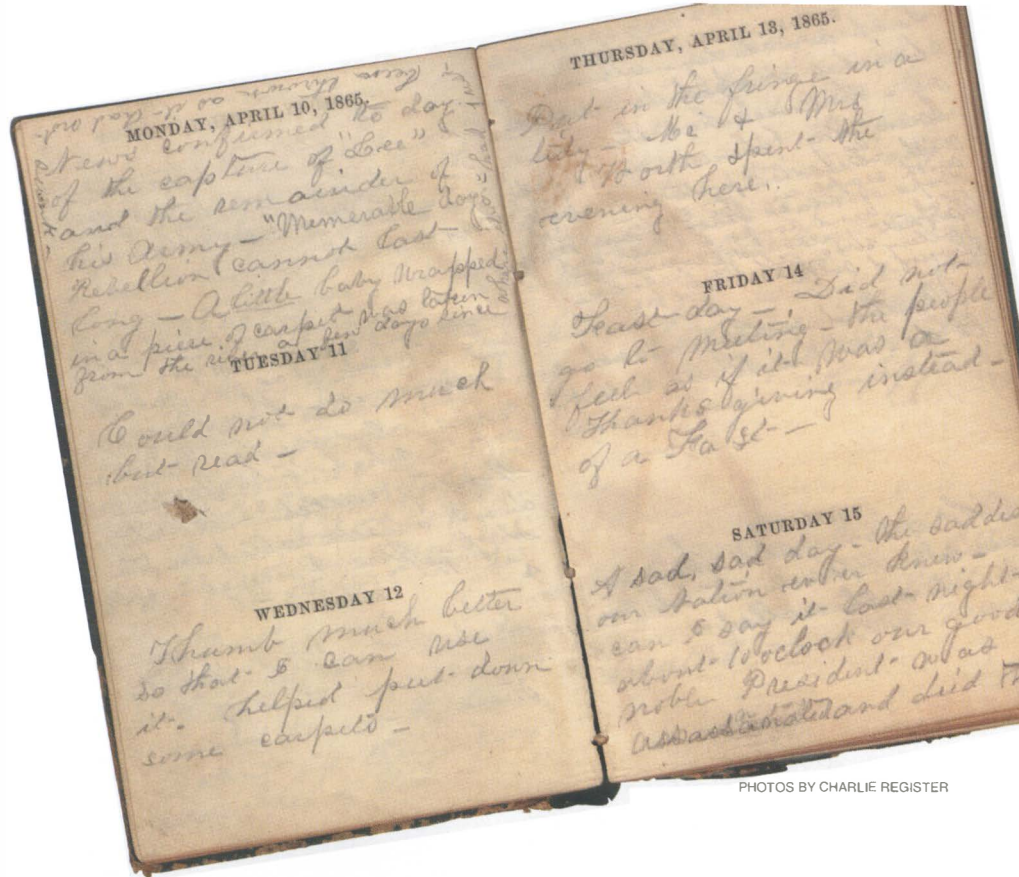 MONDAY, APRIL 10, 1865.
News confirmed to day
of the capture of "Lee"
and the remainder of
his Army – "Memerable days
Rebellion cannot last
long – A little baby wrapped
in a piece of carpet was taken
from the river a few days since
TUESDAY 11
Could not do much
but read –
WEDNESDAY 12
Thumb much better
so that I can use
it. helped put down
some carpets –
THURSDAY, APRIL 13, 1865.
Put in the fringe in a
& Mrs
spent the
evening here.
FRIDAY 14
Feast day – Did not
go to meeting – the people
feel as if it was a
Thanksgiving instead
of a Fast –
SATURDAY 15
A sad, sad day – the saddes
our nation ever knew –
can I say it last night
about 10 oclock our good
noble President was
assassinated and died
PHOTOS BY CHARLIE REGISTER